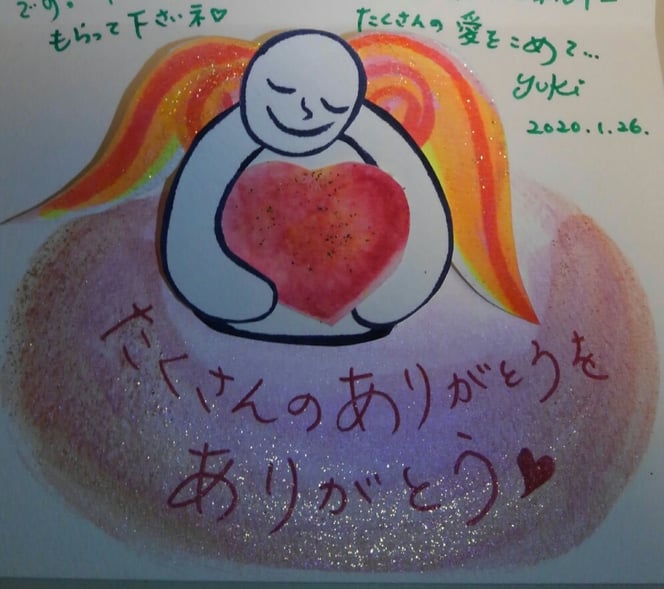 です。
もらって下さいネ♡
たくさんの愛をこめて...
yuki
2020.1.26.
たくさんのありがとうを
ありがとう♥